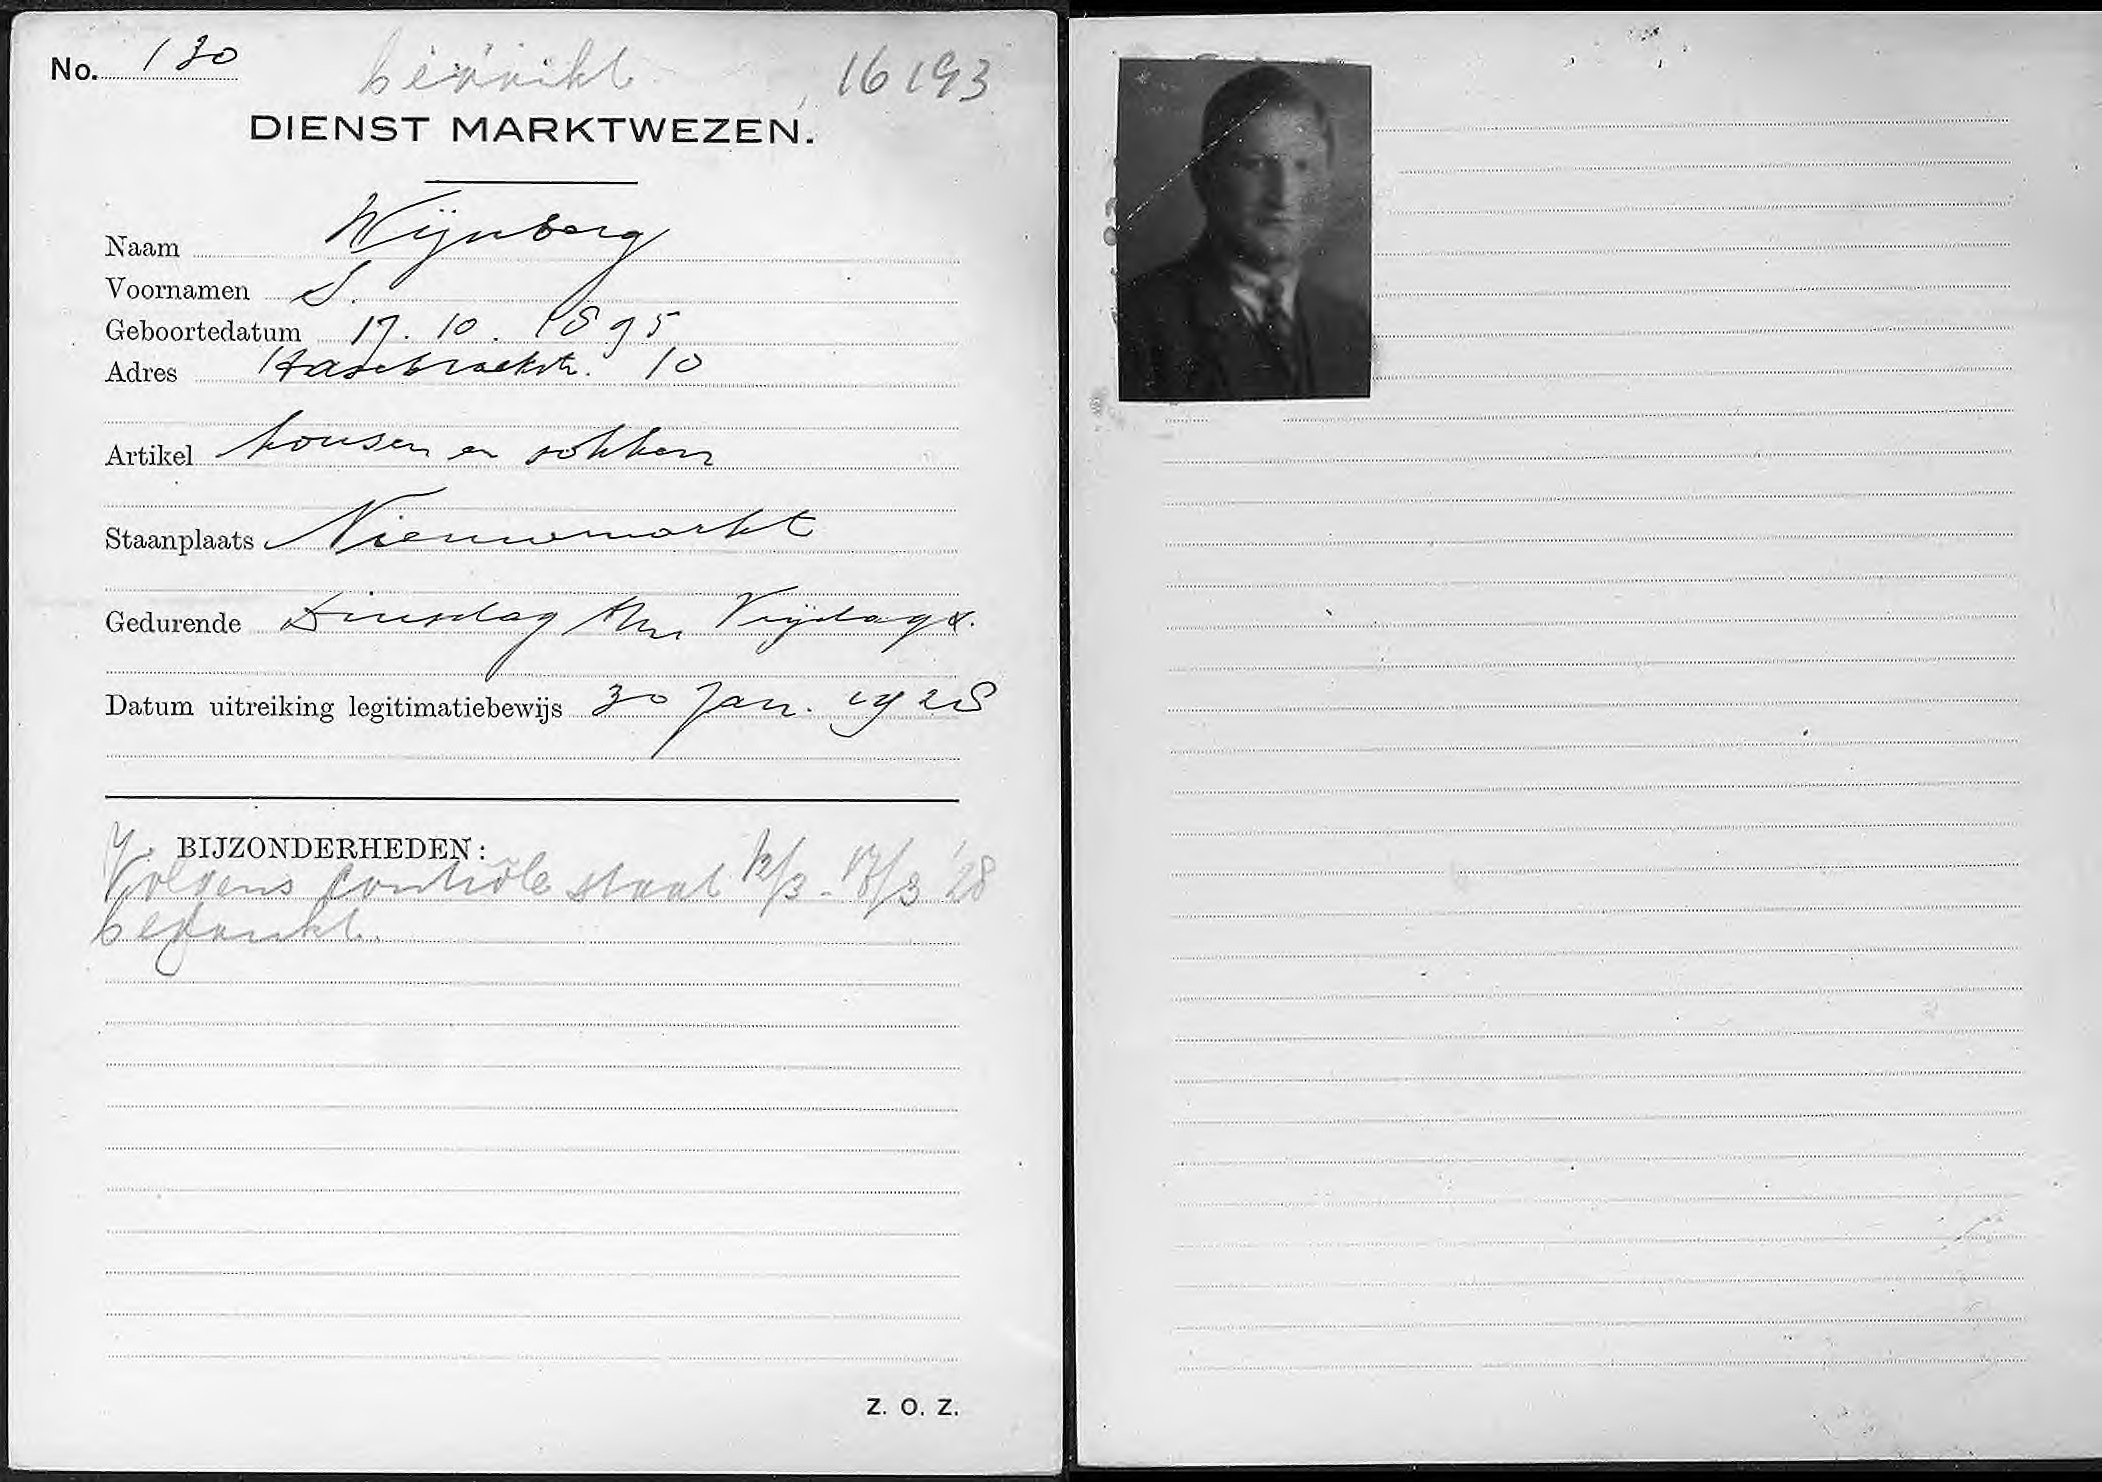 No. 130 bedankt 16193
DIENST MARKTWEZEN.
Naam Wijnberg
Voornamen S.
Geboortedatum 17. 10. 1895
Adres Hasebroekstr. 10
Artikel kousen en sokken
Staanplaats Nieuwmarkt
Gedurende Dinsdag t/m Vrijdag
Datum uitreiking legitimatiebewijs 30 Jan. 1928
BIJZONDERHEDEN:
Volgens contrôle staat 12/3 - 17/3 '28
bedankt.
Z. O. Z.